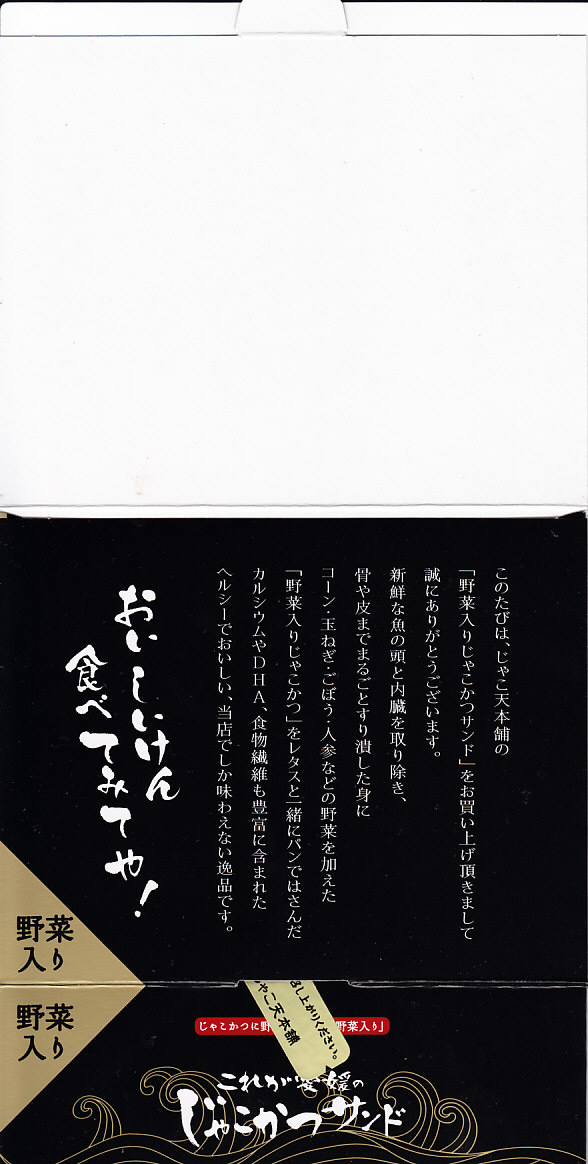 このたびは、じゃこ天本舗の
「野菜入りじゃこかつサンド」をお買い上げ頂きまして
誠にありがとうございます。
新鮮な魚の頭と内臓を取り除き、
骨や皮までまるごとすり潰した身に
コーン・玉ねぎ・ごぼう・人参などの野菜を加えた
「野菜入りじゃこかつ」をレタスと一緒にパンではさんだ
カルシウムやDHA、食物繊維も豊富に含まれた
ヘルシーでおいしい、当店でしか味わえない逸品です。
おいしいけん
食べてみてや!
野菜
入り
野菜
入り
じゃこかつに野
野菜入り」
し上がりください。
やこ天本舗
これが愛媛の
じゃこかつサンド